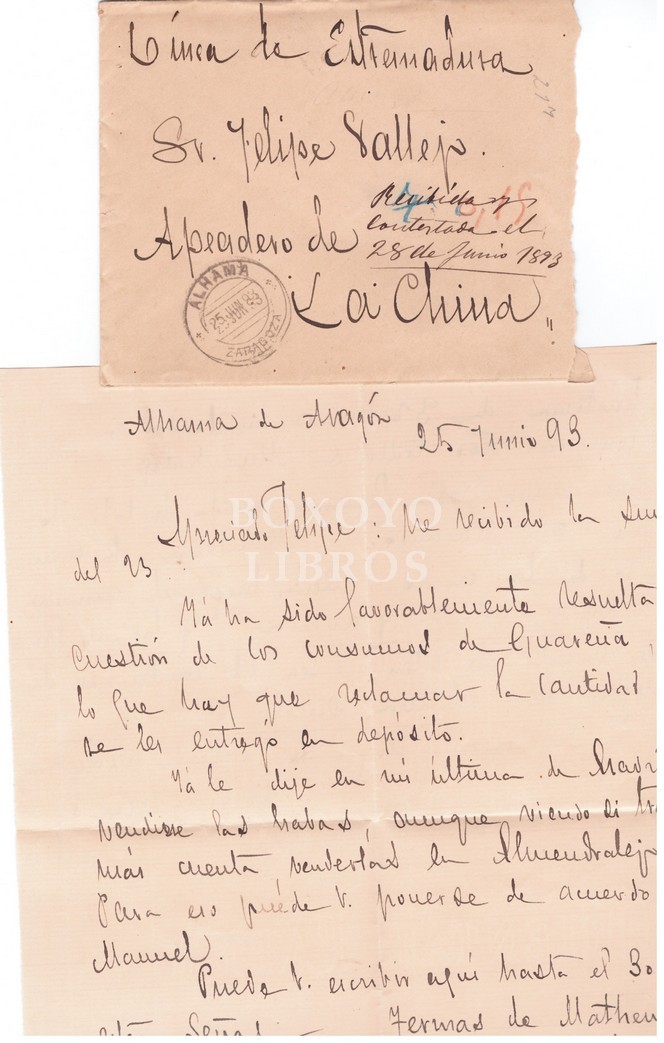 Línea de Extremadura
217
Sr. Felipe Vallejo.
Recibida y
contestada el
28 de Junio 1893
Apeadero de
La China
ALHAMA
25 JUN 93
ZARAGOZA
Alhama de Aragón
25 Junio 93.
BOXOYO
LIBROS
Apreciado Felipe: He recibido la suya
del 23.
Yá ha sido favorablemente resuelta
cuestión de los consumos de Guareña,
lo que hay que reclamar la cantidad
se les entregó en depósito.
Yá le dije en mi última de Madri
vendiese las habas, aunque viendo si tr
más cuenta venderlas en Almendralejo
Para eso puede V. ponerse de acuerdo
Manuel.
Puede V. escribir aquí hasta el 30
Termas de Matheu